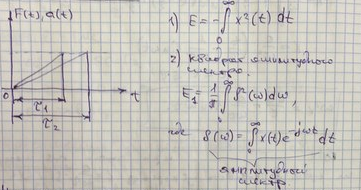 F(t), a(t)
1) E = -∫₀^∞ x²(t) dt
2) квадрат амплитудного
спектра.
E₁ = 1/π ∫₀^∞ S²(ω)dω,
0
t
τ₁
τ₂
где S(ω) = ∫₀^∞ x(t) e^{-jωt} dt
амплитудный
спектр